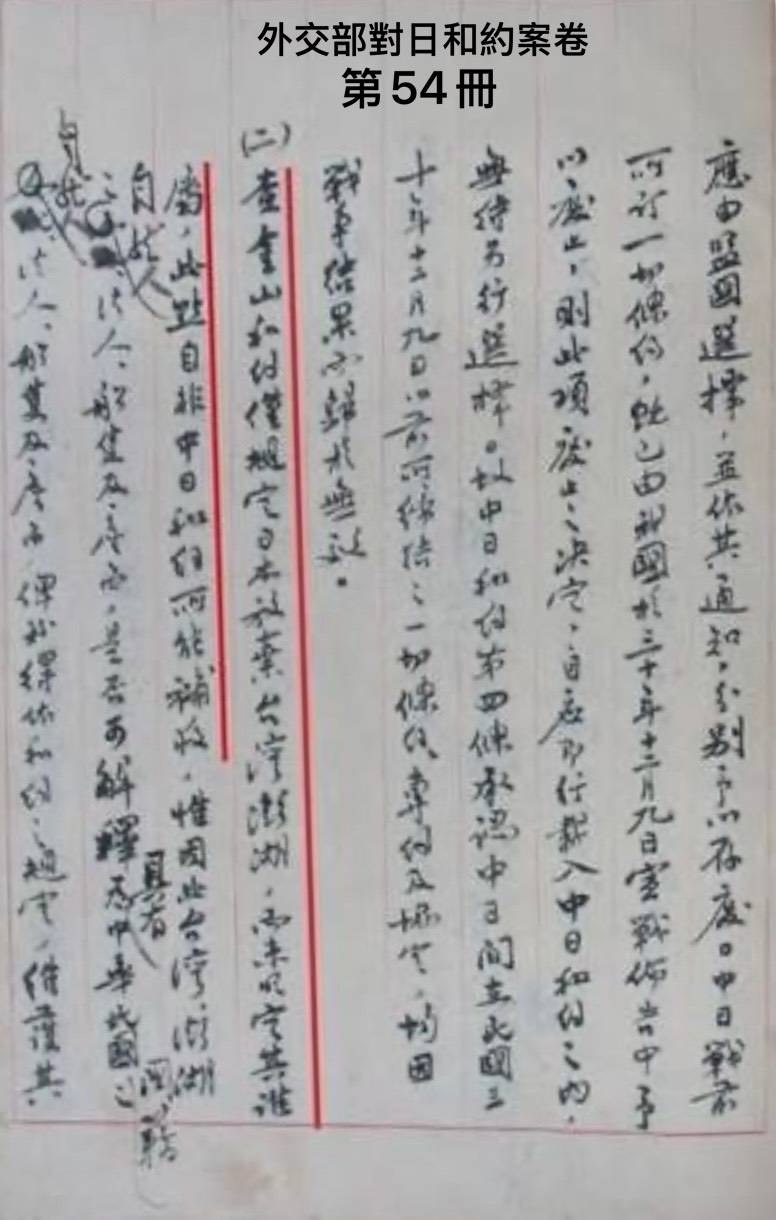 外交部對日和約案卷
第54冊
應由盟國選擇，並依其通知，分別予以存廢。中日戰前
所訂一切條約，既已由我國於三十年十二月九日宣戰佈告中予
以廢止，則此項廢止之決定，自應即行載入中日和約之內，
無待另行選擇。故中日和約第四條承認中日間在民國三
十年十二月九日以前所締結之一切條約、專約及協定，均因
戰爭結果而歸於無效。
(二)查金山和約僅規定日本放棄台灣澎湖，而未明定其誰
屬，此點自非中日和約所能補救，惟因此台灣、澎湖
之自然人、法人、船隻及產品，是否可解釋為具有中華民國之國籍
自然人、法人、船隻及產品，俾於得依和約之規定，維護其